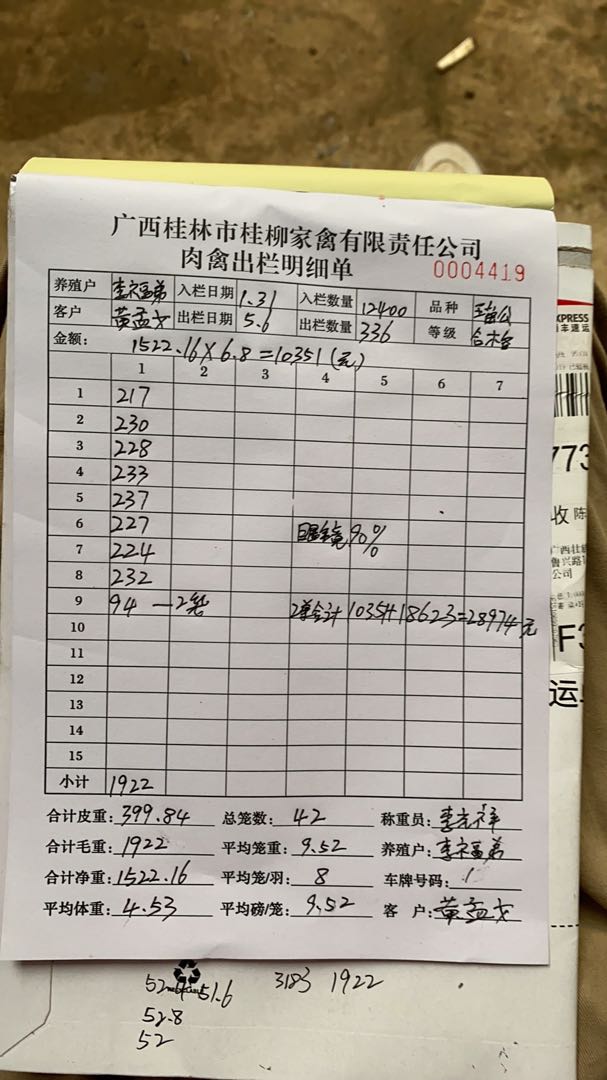 广西桂林市桂柳家禽有限责任公司
肉禽出栏明细单 0004419
养殖户 李福弟 入栏日期 1.31 入栏数量 12400 品种
客户 黄孟戈 出栏日期 5.6 出栏数量 336 等级 合格
金额: 1522.16×6.8=10351(元)
1 2 3 4 5 6 7
1 217
2 230
3 228
4 233
5 237
6 227 眼镜90%
7 224
8 232
9 94 —2笼 2单合计 10351+18623=28974元
10
11
12
13
14
15
小计 1922
合计皮重: 399.84 总笼数: 42 称重员: 李先祥
合计毛重: 1922 平均笼重: 9.52 养殖户: 李福弟
合计净重: 1522.16 平均笼/羽: 8 车牌号码: 1
平均体重: 4.53 平均磅/笼: 9.52 客 户: 黄孟戈
51.6 3183 1922
52.8
52
EXPRESS
丰速运
773
收 陈
广西壮
鲁兴路
公司
F3
运